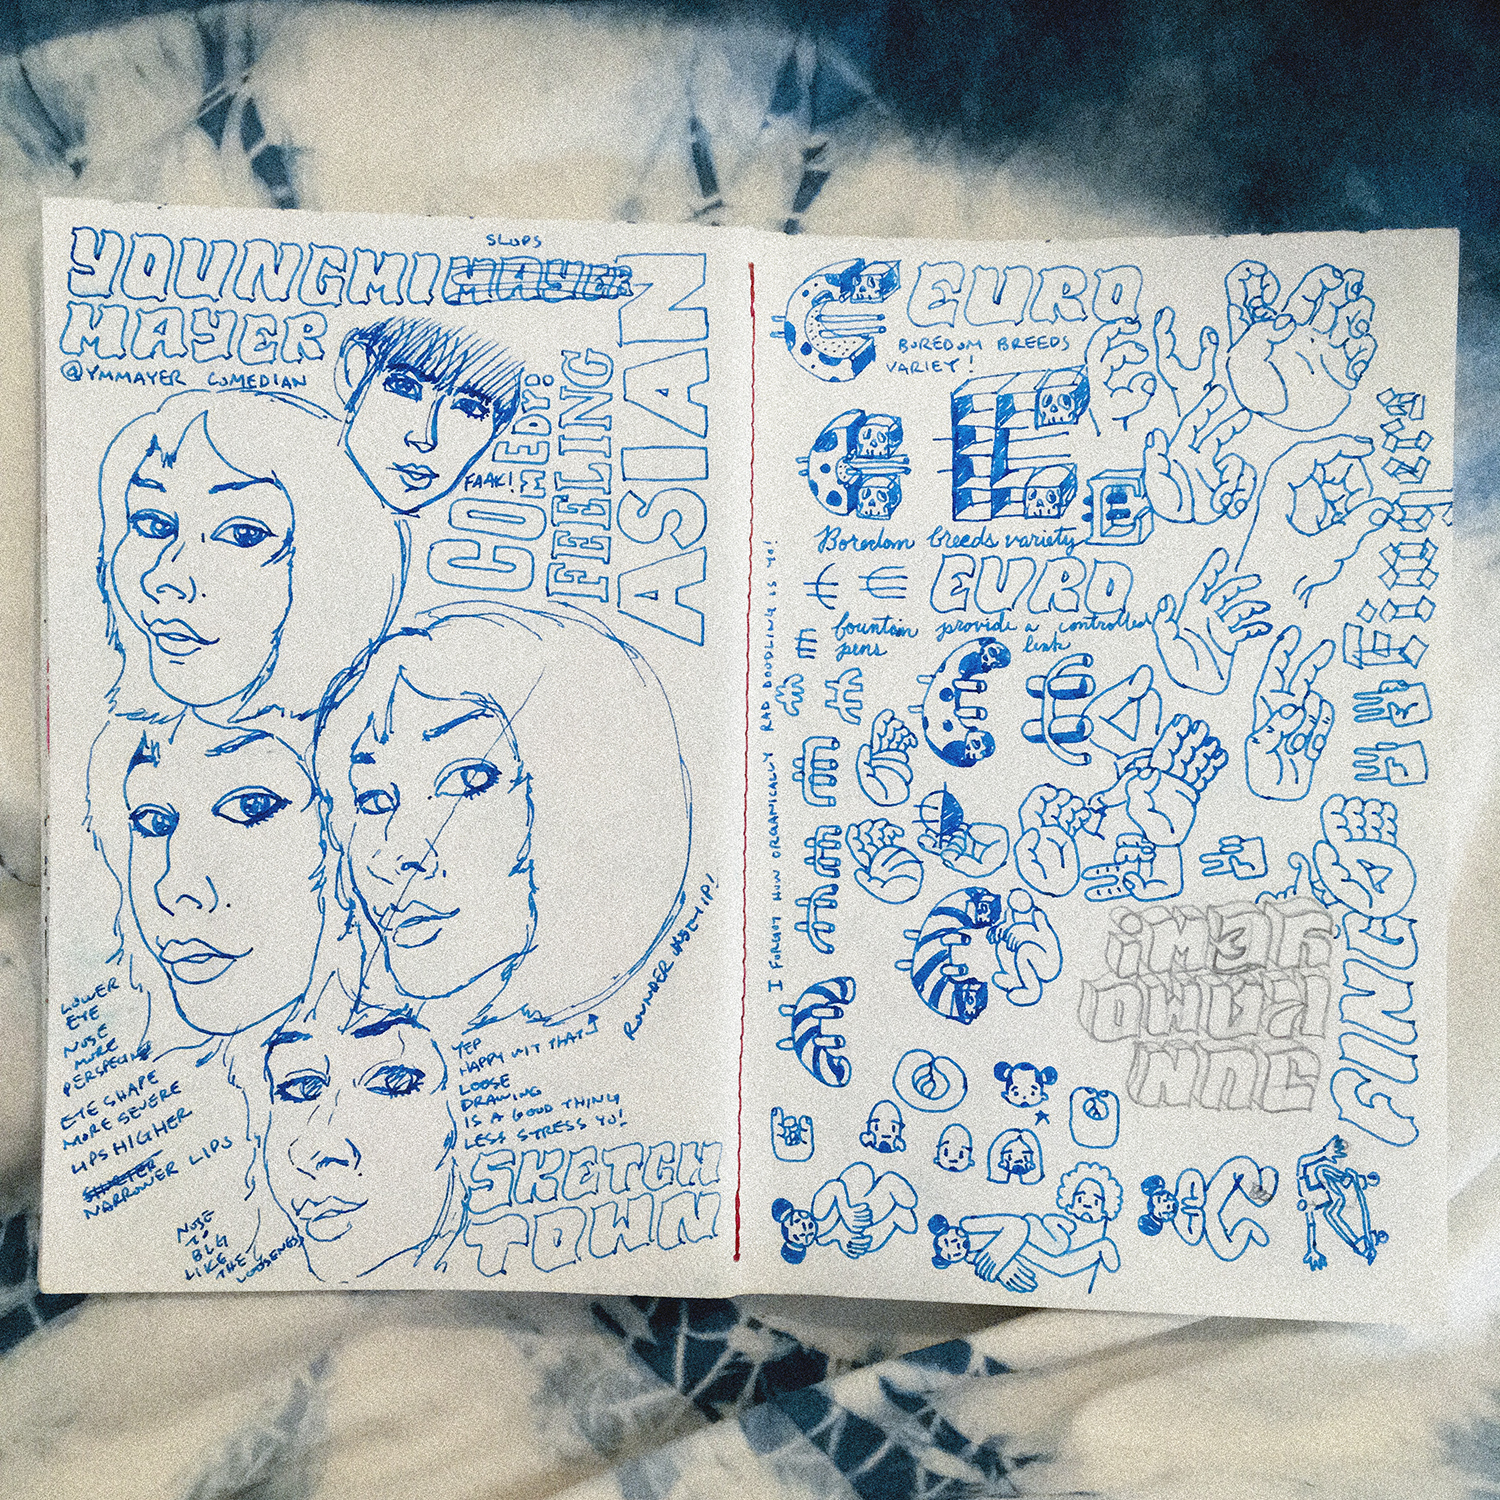 YOUNGMI MAYER
SLOPS
MAYER
@YMMAYER COMEDIAN
FAAK!
COMEDY:
FEELING
ASIAN
LOWER
EYE
NOSE
MORE
PERSPECTIVE
EYE SHAPE
MORE SEVERE
LIPS HIGHER
NARROWER LIPS
NOSE
TO
BIG
LIKE
THE
LOOSENESS
YEP
HAPPY WIT THAT
LOOSE
DRAWING
IS A GOOD THING
LESS STRESS YO!
ROUNDER
SKETCH
TOWN
I FORGOT HOW ORGANICALLY RAD DOODLING IS YO!
EURO
BOREDOM BREEDS
VARIEY!
E
Boredom breeds variety
EURO
fountain provide a controlled
pens leak
FINGO